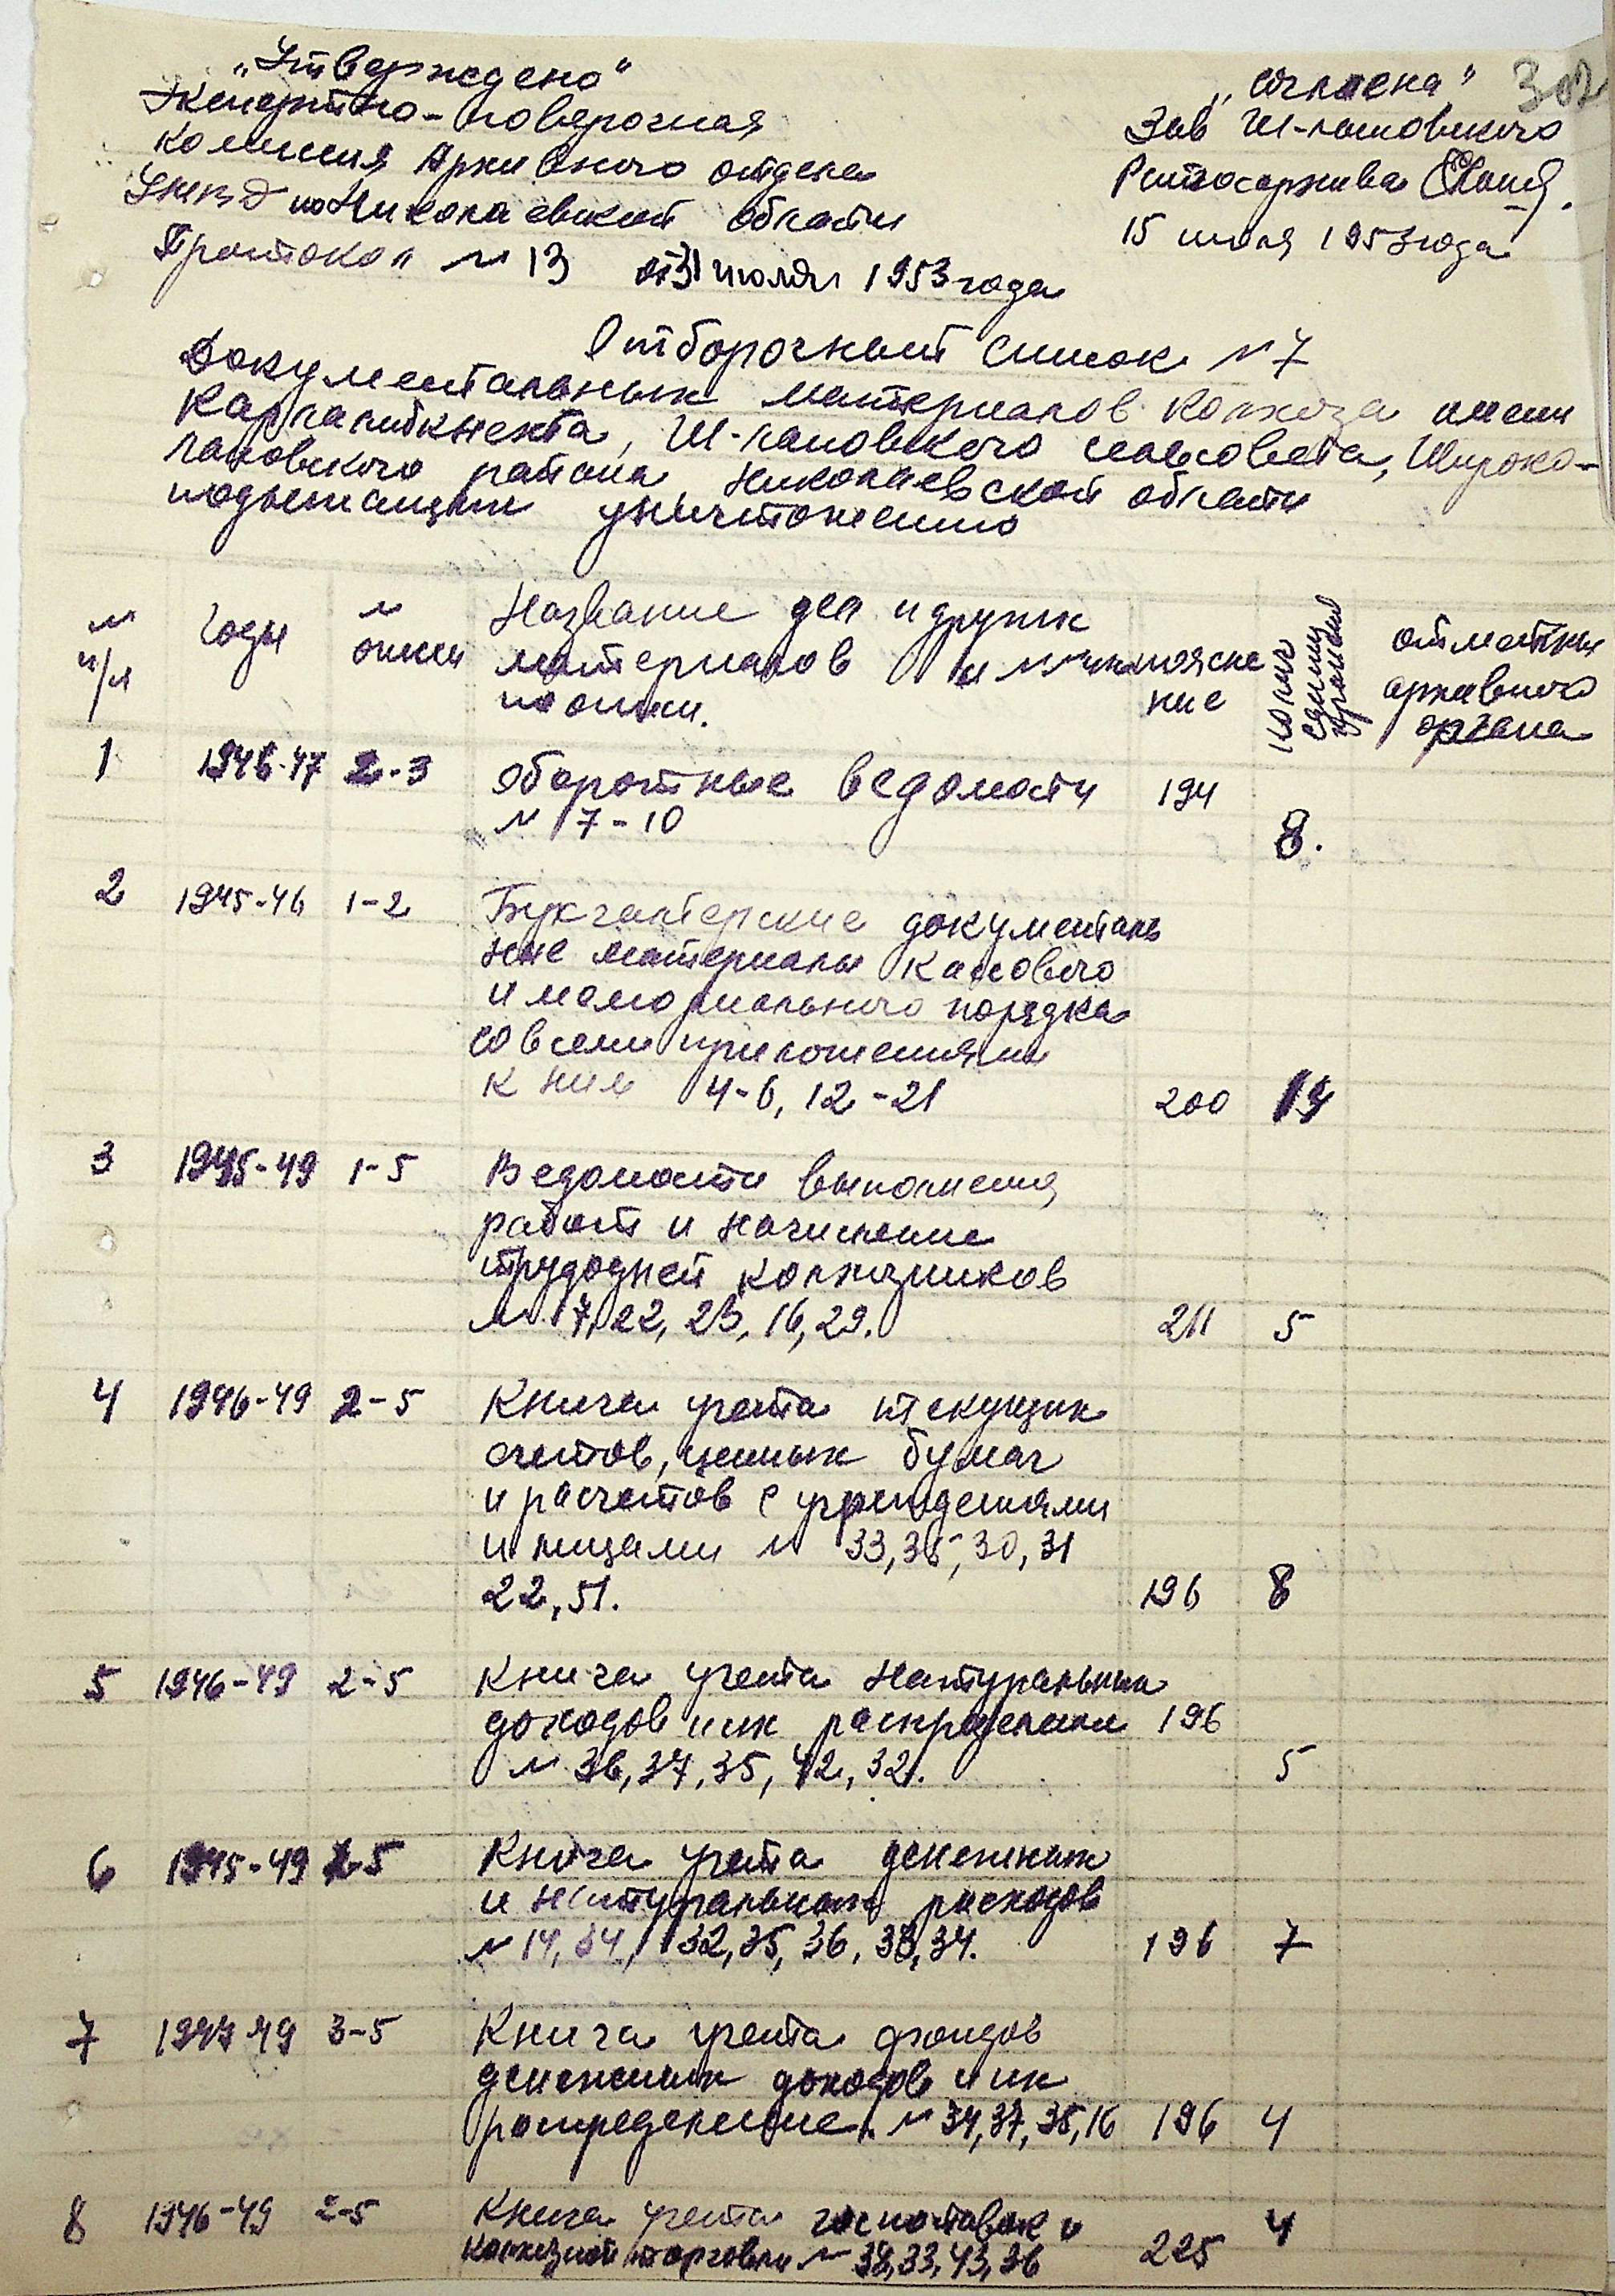 „Утверждено"
Экспертно-поверочная
комиссия Архивного отдела
УМВД по Николаевской области
Протокол № 13 от 31 июля 1953 года
„Согласена" 302
Зав Ш-лановского
Райгосархива
15 июля 1953 года
Отборочный список № 7
документальных материалов колхоза имени
Карлалибкнехта, Ш-лановского сельсовета, Широко-
лановского района Николаевской области
подлежащих уничтожению
№ п/п
Годы
№ описи
Название дел и других
материалов и №№ их
по описи.
пояснение
колич единиц хранения
отметки архивного органа
1 1946-47 2-3 Оборотные ведомости 194
№ 7-10 8.
2 1945-46 1-2 Бухгалтерские документаль
ные материалы касового
и мемориального порядка
со всеми приложениями
к ним 4-6, 12-21 200 14
3 1945-49 1-5 Ведомости выполнения
работ и начисление
трудодней колхозников
№ 17, 22, 23, 16, 29. 211 5
4 1946-49 2-5 Книга учета текущих
счетов, ценных бумаг
и расчетов с учреждениями
и лицами № 33, 38, 30, 31
22, 51. 196 8
5 1946-49 2-5 Книга учета натуральных
доходов и их распределения 196
№ 36, 37, 35, 42, 32. 5
6 1945-49 1-5 Книга учета денежных
и натуральных расходов
№ 14, 24, 32, 35, 36, 38, 34. 196 7
7 1947-49 3-5 Книга учета фондов
денежных доходов и их
распределение. № 34, 37, 38, 16 196 4
8 1946-49 2-5 Книга учета госпоставок и 4
колхозной торговли № 38, 33, 43, 36 225